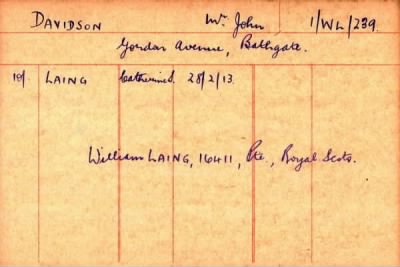 DAVIDSON Mr. John 1/WL/239.
Gordon Avenue, Bathgate.
10/. LAING Catherine S. 28/2/13.
William LAING, 16411, Pte., Royal Scots.